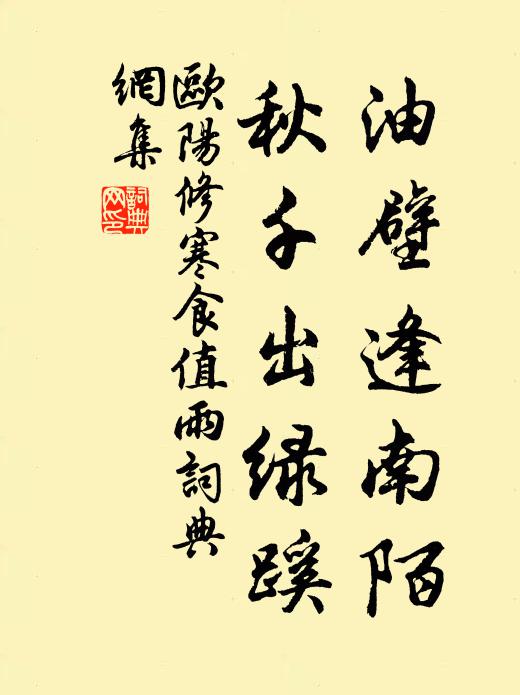 油壁逢南陌
秋千出绿蹊
歐陽修寒食值雨詞典
網集
詞典
网印